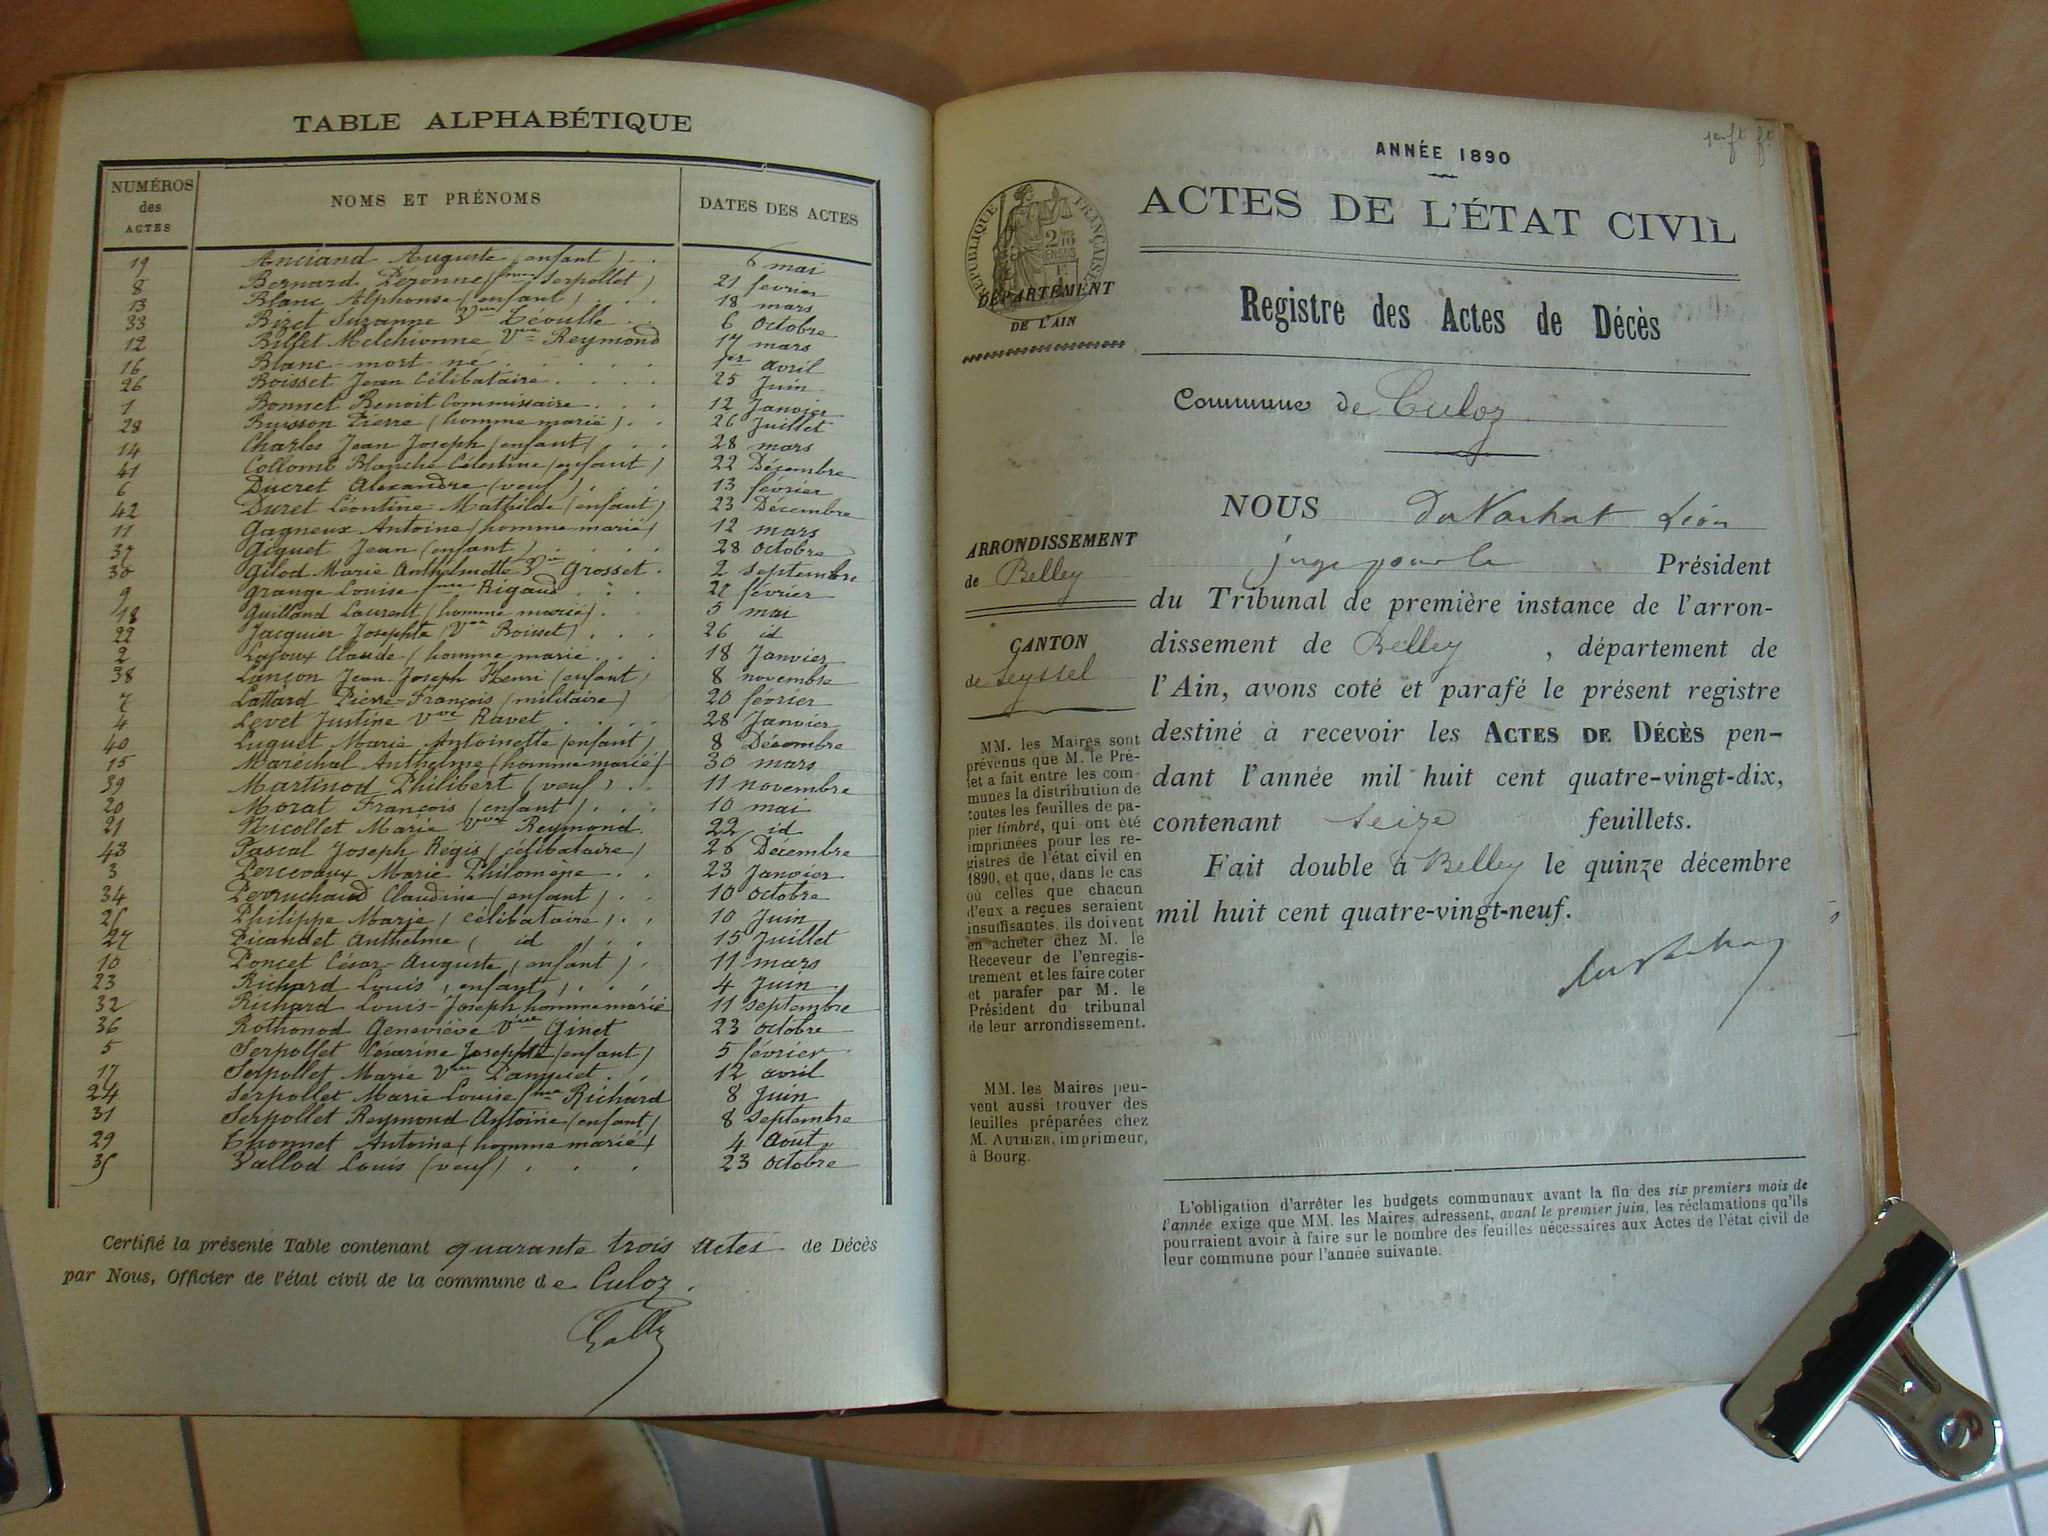 TABLE ALPHABÉTIQUE
NUMÉROS des ACTES NOMS ET PRÉNOMS DATES DES ACTES
19 Anciand Auguste (enfant) . . 6 mai
8 Bernard Péronne (fme Serpollet) 21 février
13 Blanc Alphonse (enfant) . . . 18 mars
33 Bizet Suzanne Vve . . 6 octobre
12 Billet Melchionne Vve Reymond 17 mars
16 Blanc mort-né . . . . . 1er avril
26 Boisset Jean Célibataire . . . . 25 Juin
1 Bonnet Benoit Commissaire . . . 12 Janvier
28 Buisson Pierre (homme marié) . . 26 Juillet
14 Charles Jean Joseph (enfant) . . . 28 mars
41 Collomb Blanche Célestine (enfant) 22 Décembre
6 Ducret Alexandre (veuf) . . . . 13 février
42 Duret Léontine Mathilde (enfant) 23 Décembre
11 Gagneux Antoine (homme marié) 12 mars
37 Giguet Jean (enfant) . . . . 28 octobre
30 Gilod Marie Anthelmette Vve Grosset . 2 septembre
9 Grange Louise fme Rigaud . . . 22 février
18 Guilland Laurent (homme marié) . 5 mai
22 Jacquier Josephte (Vve Boisset) . . . 26 id
2 Lajoux Claude (homme marié . . . 18 Janvier
38 Lançon Jean Joseph Henri (enfant) 8 novembre
7 Lattard Pierre François (militaire) 20 février
4 Levet Justine Vve Ravet . . . . 28 Janvier
40 Luquet Marie Antoinette (enfant) 8 Décembre
15 Maréchal Anthelme (homme marié) 30 mars
39 Martinod Philibert (veuf) . . 11 novembre
20 Morat François (enfant) . . . 10 mai
21 Nicollet Marie Vve Reymond . 22 id
43 Pascal Joseph Régis (célibataire) 26 Décembre
3 Percevaux Marie Philomène . . 23 Janvier
34 Perruchaud Claudine (enfant) . . 10 octobre
25 Philippe Marie (célibataire) . . 10 Juin
27 Picandet Anthelme ( id ) . . 15 Juillet
10 Poncet César Auguste (enfant) . 11 mars
23 Richard Louis (enfant) . . . 4 Juin
32 Richard Louis-Joseph homme marié 11 septembre
36 Rothonod Geneviève Vve Ginet 23 octobre
5 Serpollet Josephte (enfant) 5 février
17 Serpollet Marie Vve . . 12 avril
24 Serpollet Marie Louise fme Richard 8 Juin
31 Serpollet Reymond Antoine (enfant) 8 septembre
29 Thonnet Antoine (homme marié) 4 Août
35 Vallod Louis (veuf) . . . 23 octobre
Certifié la présente Table contenant quarante trois actes de Décès
par Nous, Officier de l'état civil de la commune de Culoz.
ANNÉE 1890
ACTES DE L'ÉTAT CIVIL
RÉPUBLIQUE FRANÇAISE
DÉPARTEMENT
DE L'AIN
Registre des Actes de Décès
Commune de Culoz
ARRONDISSEMENT
de Belley
CANTON
de Seyssel
MM. les Maires sont
prévenus que M. le Pré-
fet a fait entre les com-
munes la distribution de
toutes les feuilles de pa-
pier timbré, qui ont été
imprimées pour les re-
gistres de l'état civil en
1890, et que, dans le cas
où celles que chacun
d'eux a reçues seraient
insuffisantes, ils doivent
en acheter chez M. le
Receveur de l'enregis-
trement et les faire coter
et parafer par M. le
Président du tribunal
de leur arrondissement.
MM. les Maires peu-
vent aussi trouver des
feuilles préparées chez
M. AUTHIER, imprimeur,
à Bourg.
NOUS Léon
juge pour le Président
du Tribunal de première instance de l'arron-
dissement de Belley , département de
l'Ain, avons coté et parafé le présent registre
destiné à recevoir les ACTES DE DÉCÈS pen-
dant l'année mil huit cent quatre-vingt-dix,
contenant seize feuillets.
Fait double à Belley le quinze décembre
mil huit cent quatre-vingt-neuf.
L'obligation d'arrêter les budgets communaux avant la fin des six premiers mois de
l'année exige que MM. les Maires adressent, avant le premier juin, les réclamations qu'ils
pourraient avoir à faire sur le nombre des feuilles nécessaires aux Actes de l'état civil de
leur commune pour l'année suivante.